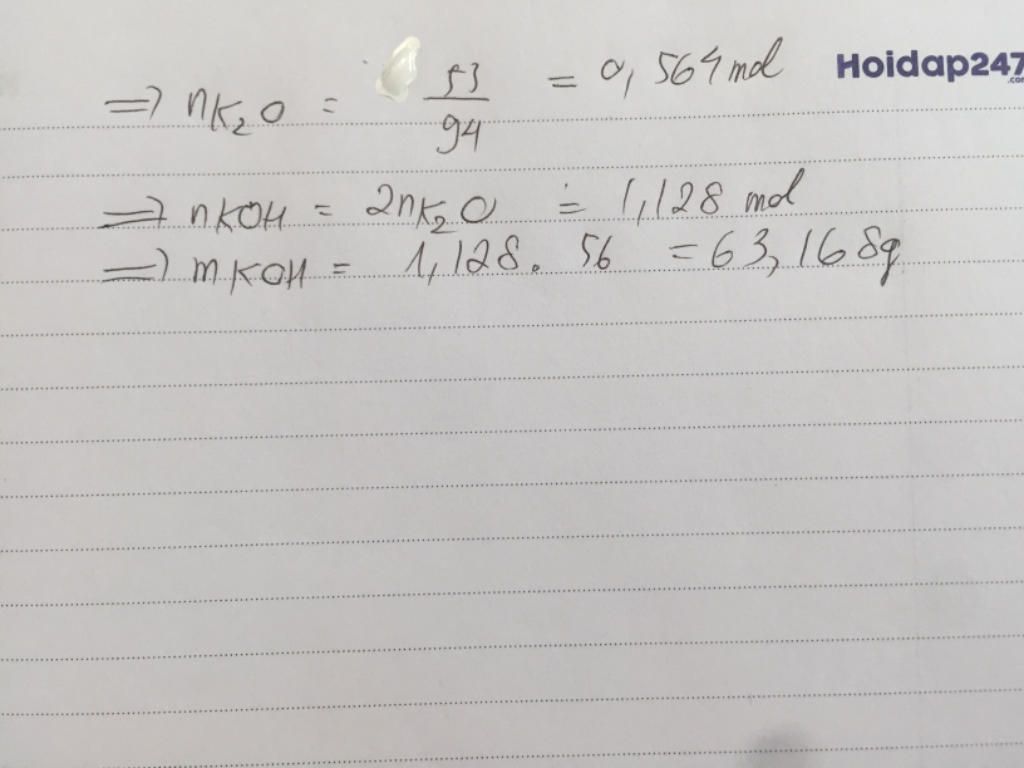 ⇒ nK₂O = 53/94 = 0,564 mol
Hoidap247
.com
⇒ nKOH = 2nK₂O = 1,128 mol
⇒ mKOH = 1,128. 56 = 63,168g